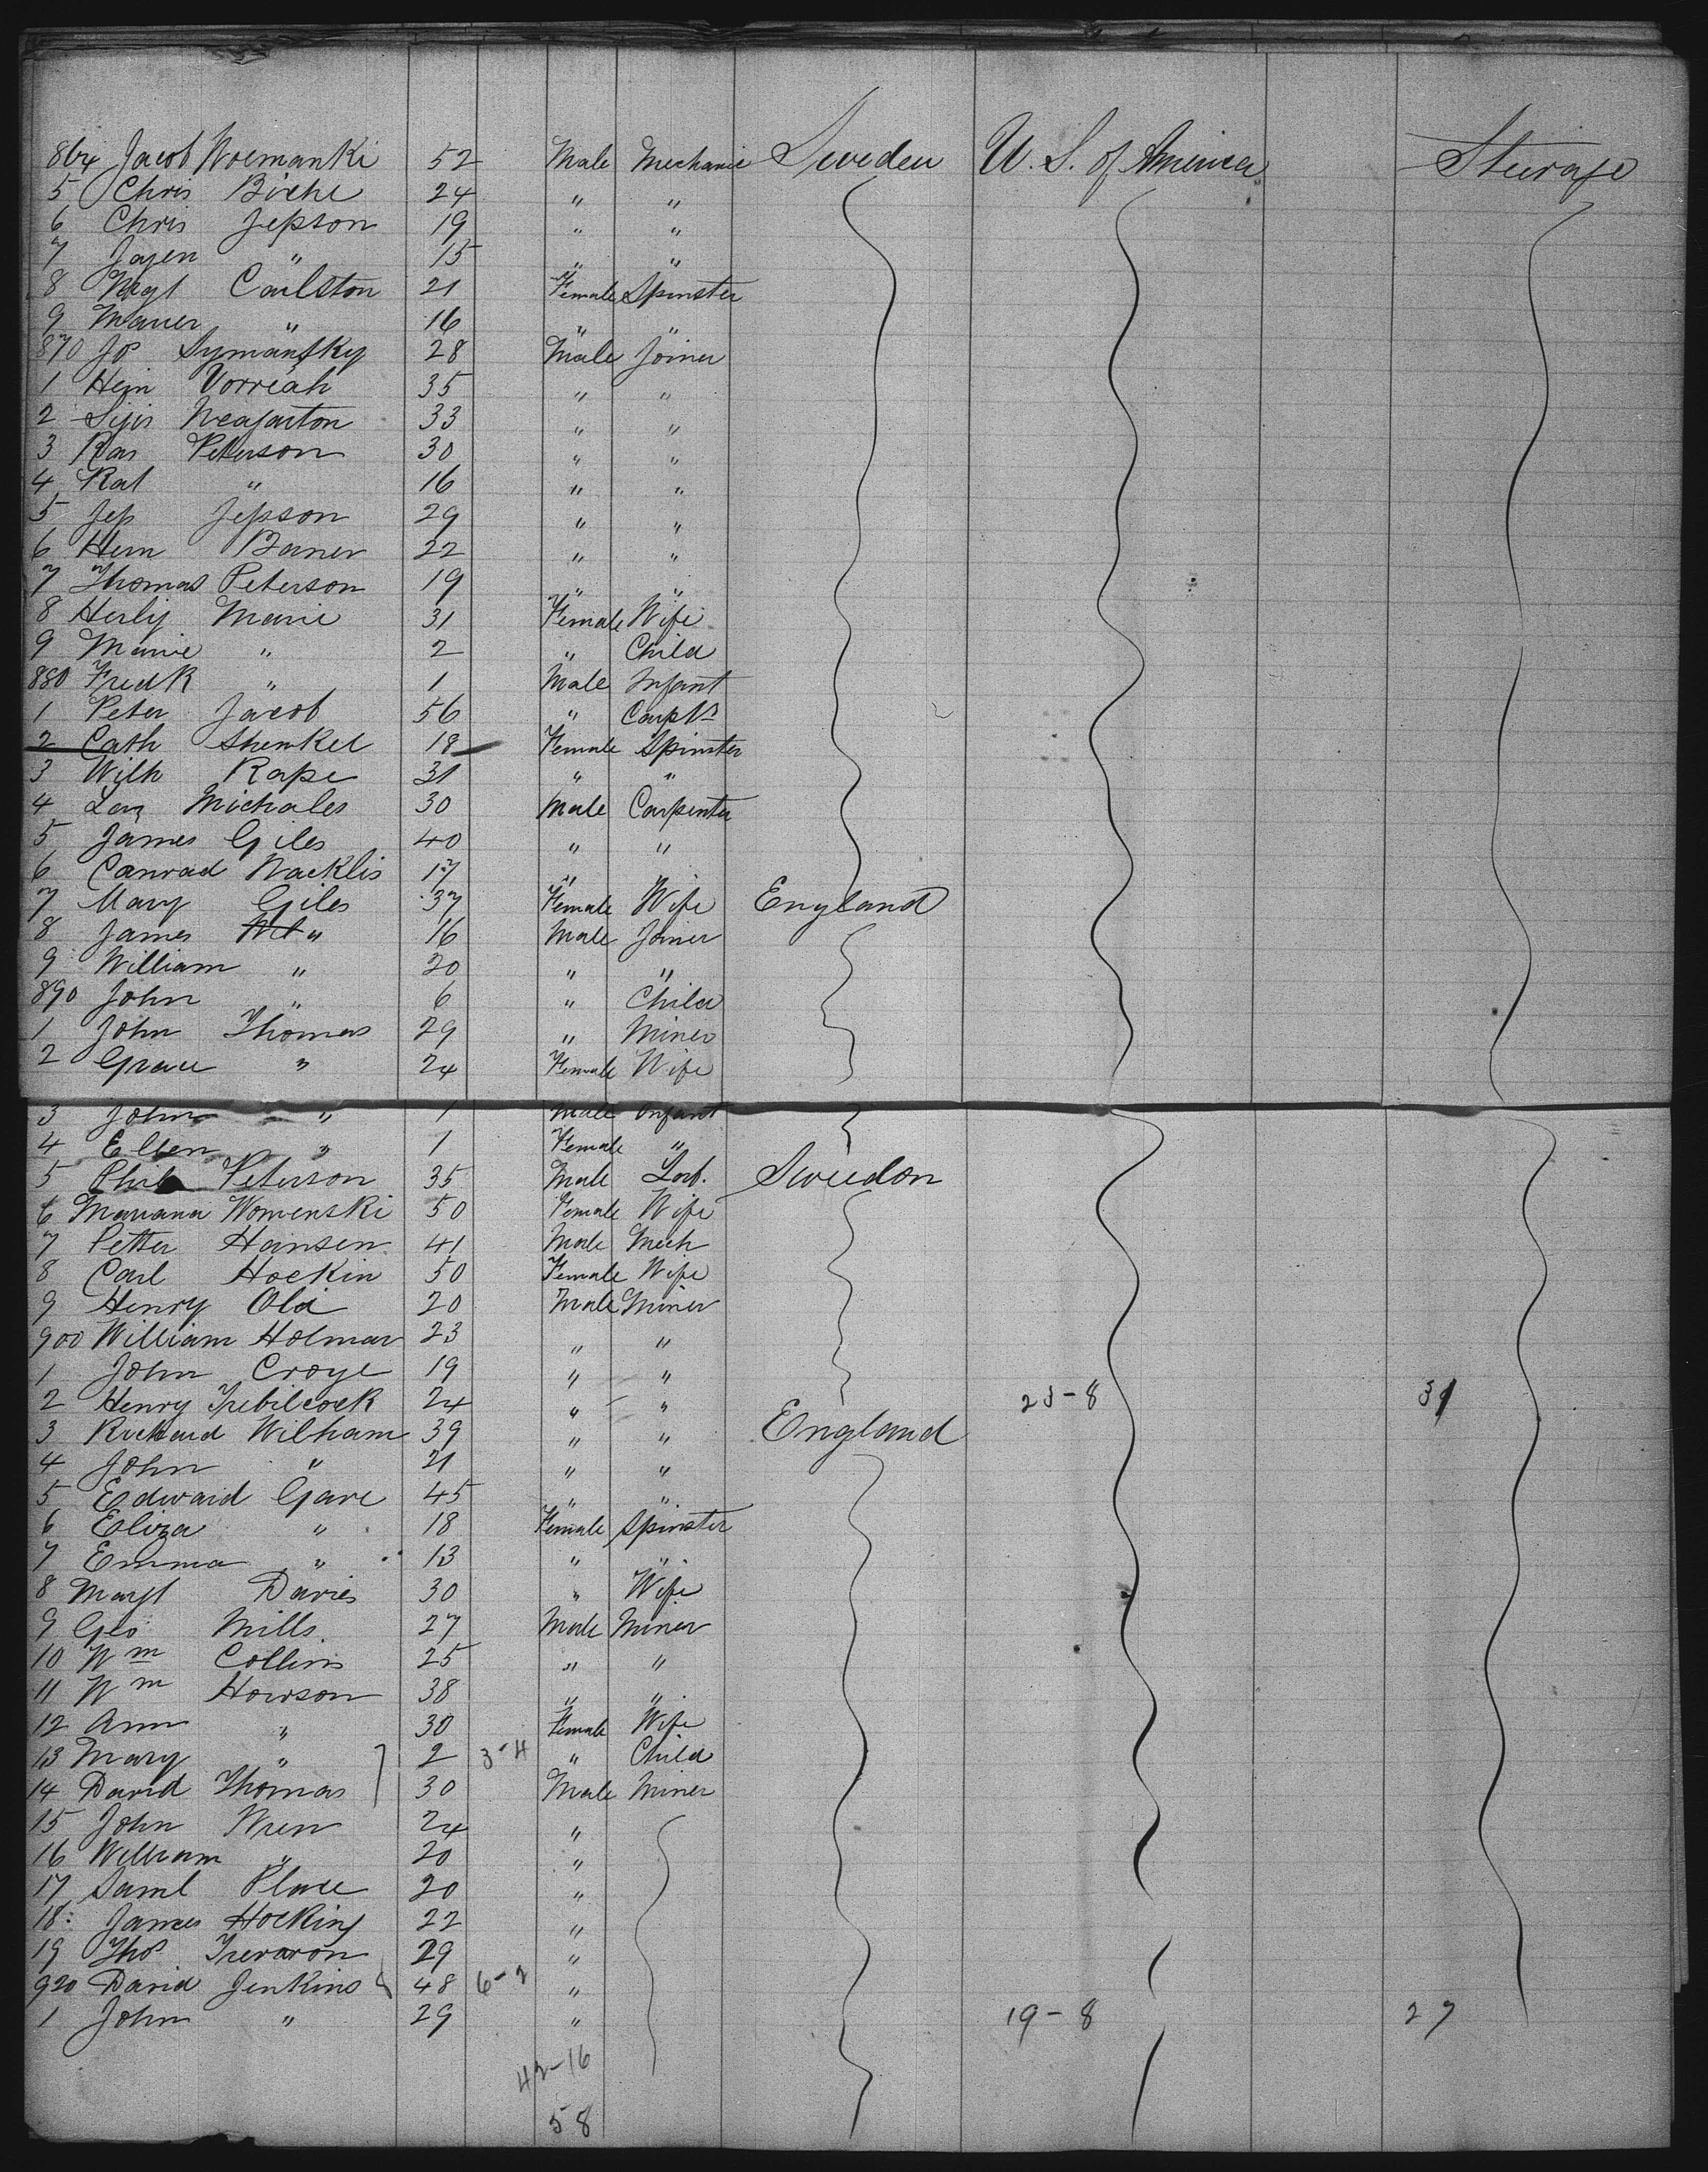 864 Jacob Woemanki 52 Male Mechanic Sweden U. S. of America Steerage
5 Chris Biche 24 " "
6 Chris Jepson 19 " "
7 Jajen " 15 " "
8 Magt Carlston 21 Female Spinster
9 Maner " 16 " "
870 Jos Symansky 28 Male Joiner
1 Hein Vorreah 35 " "
2 Sijis Neagarton 33 " "
3 Ras Peterson 30 " "
4 Kat " 16 " "
5 Jep Jepson 29 " "
6 Hern Borner 22 " "
7 Thomas Peterson 19 " "
8 Herlij Marie 31 Female Wife
9 Marie " 2 " Child
880 Fredk " 1 Male Infant
1 Peter Jacob 56 " Carptr
2 Cath Shenkel 18 Female Spinster
3 Wilh Rape 31 " "
4 Laz Michales 30 Male Carpenter
5 James Giles 40 " "
6 Conrad Wacklis 17 "
7 Mary Giles 37 Female Wife England
8 James " 16 Male Joiner
9 William " 20 " "
890 John " 6 " Child
1 John Thomas 29 " Miner
2 Grace " 24 Female Wife
3 John " 1 Male Infant
4 Ellen " 1 Female "
5 Phil Peterson 35 Male Lab. Sweedon
6 Mariana Womenski 50 Female Wife
7 Petter Hansen 41 Male Mech
8 Carl Hockin 50 Female Wife
9 Henry Old 20 Male Miner
900 William Holman 23 " "
1 John Croye 19 " "
2 Henry Trebilcock 24 " " 23-8 31
3 Richard Wilham 39 " " England
4 John " 21 " "
5 Edward Gare 45 " "
6 Eliza " 18 Female Spinster
7 Emma " 13 " "
8 Magt Davies 30 " Wife
9 Geo Mills 27 Male Miner
10 Wm Collins 25 " "
11 Wm Howson 38 " "
12 Ann " 30 Female Wife
13 Mary " 2 3-4 " Child
14 David Thomas 30 Male Miner
15 John Wren 24 "
16 William " 20 "
17 Saml Place 20 "
18 James Hocking 22 "
19 Thos Trevaron 29 "
920 David Jenkins 48 6-2 "
1 John " 29 " 19-8 27
42-16
58